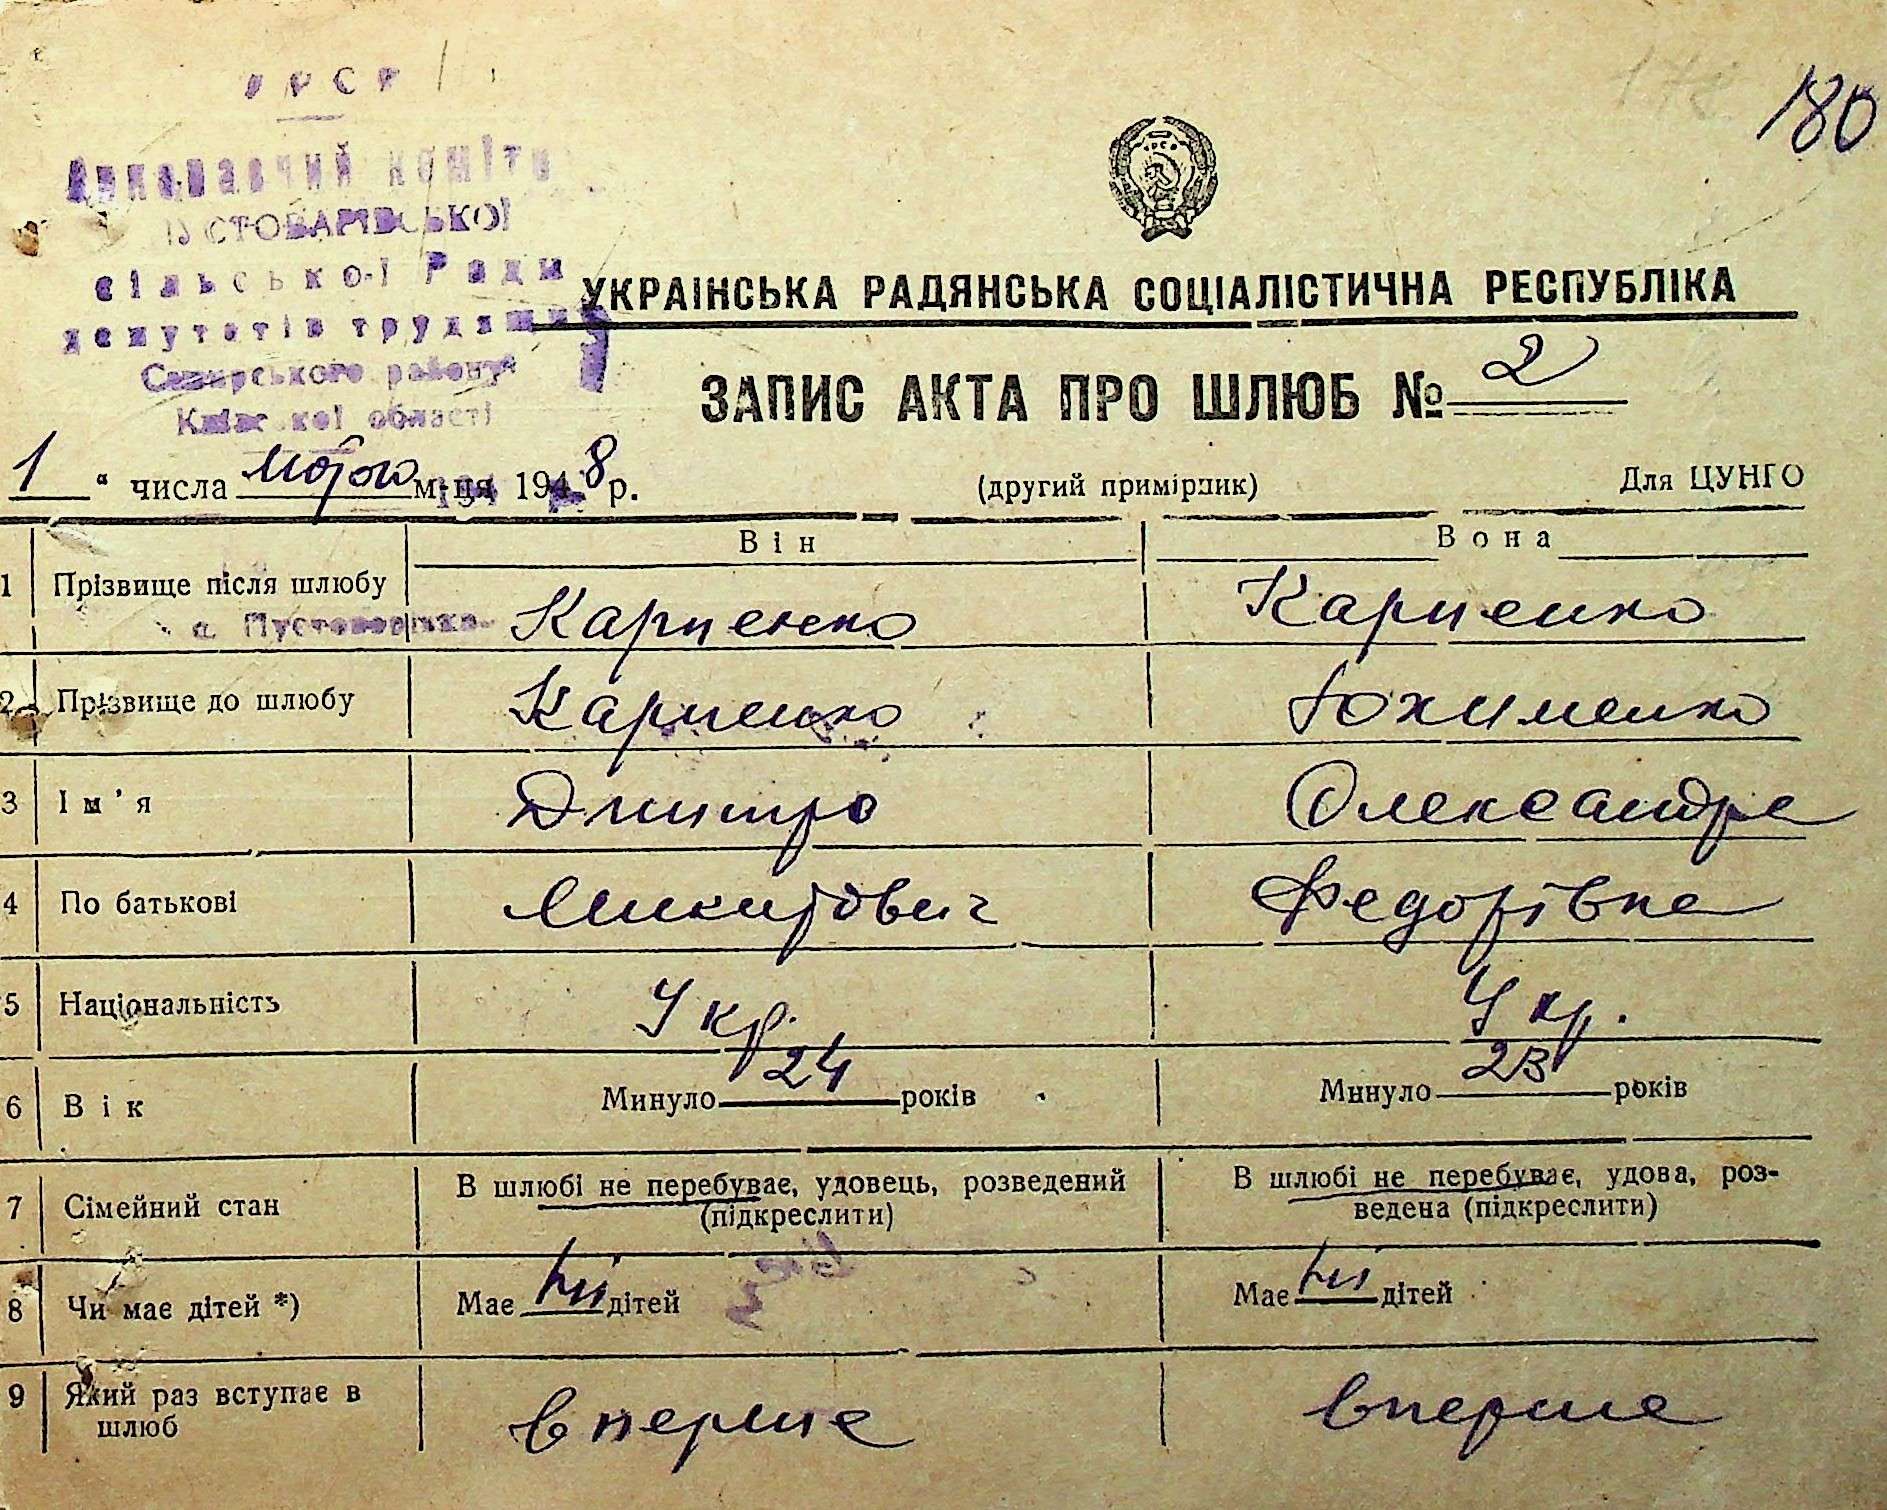 УРСР
180
Виконавчий коміте
ПУСТОВАРІВСЬКОЇ
сільської Ради
депутатів трудящих
Сквирського району
Київської області
УКРАЇНСЬКА РАДЯНСЬКА СОЦІАЛІСТИЧНА РЕСПУБЛІКА
ЗАПИС АКТА ПРО ШЛЮБ № 2
1 " числа лютого м-ця 1948 р. (другий примірник) Для ЦУНГО
Він Вона
1 Прізвище після шлюбу Карпенко Карпенко
с. Пустоварівка
2 Прізвище до шлюбу Карпенко Юхименко
3 Ім'я Дмитро Олександра
4 По батькові Микитович Федорівна
5 Національність Укр. Укр.
6 Вік Минуло 24 років Минуло 23 років
7 Сімейний стан В шлюбі не перебуває, удовець, розведений (підкреслити) В шлюбі не перебуває, удова, роз-
ведена (підкреслити)
8 Чи має дітей *) Має ні дітей Має ні дітей
9 Який раз вступає в
шлюб вперше вперше